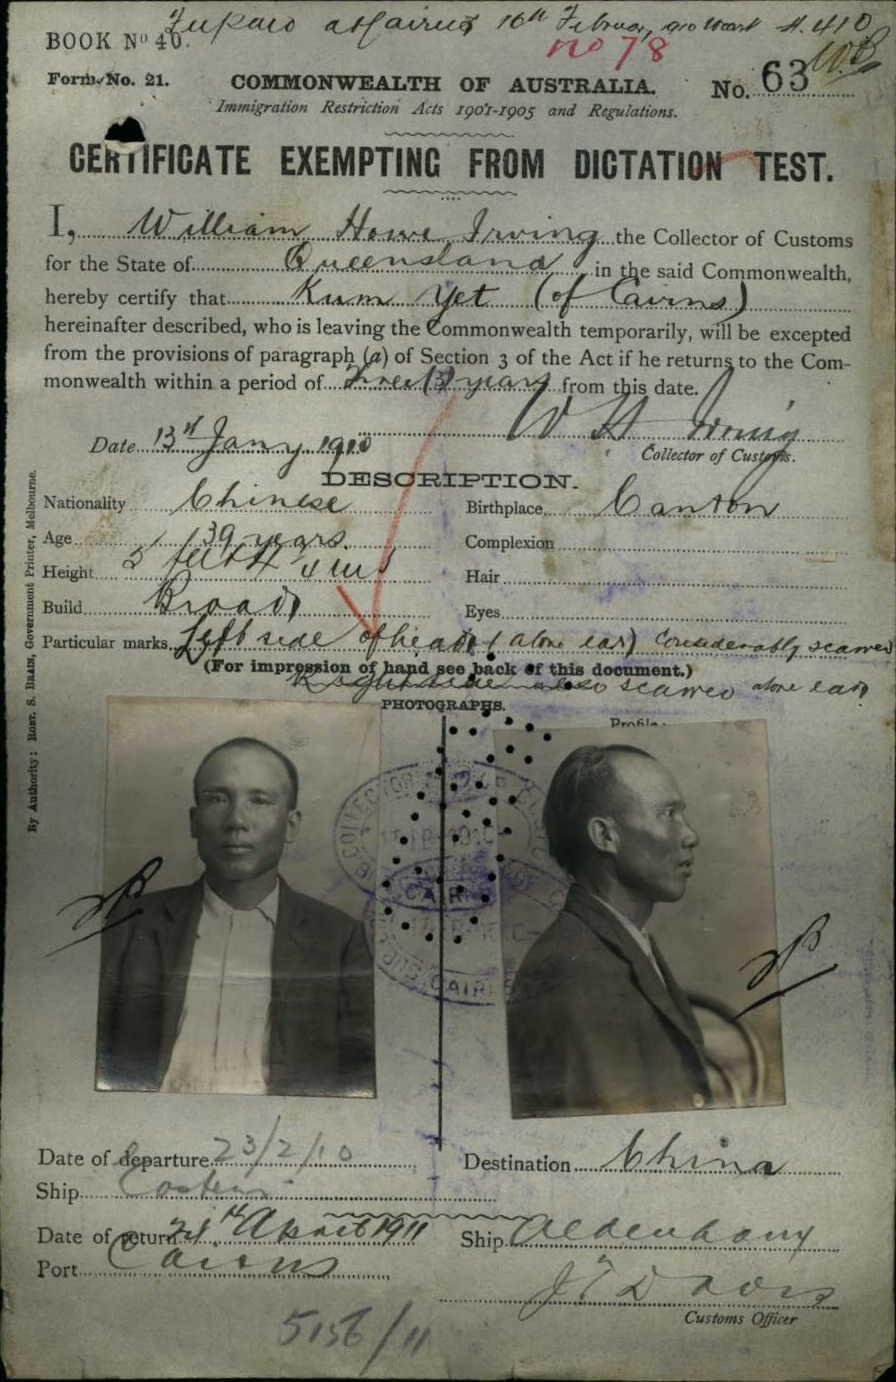 Prepared at Cairns 16th February 1910 H. 410
BOOK No 40.
no 78
WB
Form No. 21.
COMMONWEALTH OF AUSTRALIA.
No. 63
Immigration Restriction Acts 1901-1905 and Regulations.
CERTIFICATE EXEMPTING FROM DICTATION TEST.
I, William Howe Irving the Collector of Customs
for the State of Queensland in the said Commonwealth,
hereby certify that Kum Yet (of Cairns)
hereinafter described, who is leaving the Commonwealth temporarily, will be excepted
from the provisions of paragraph (a) of Section 3 of the Act if he returns to the Com-
monwealth within a period of Three (3) years from this date.
W H Irving
Date 13th Jany 1910
Collector of Customs.
DESCRIPTION.
Nationality Chinese
Birthplace Canton
Age 39 years.
Complexion
Height 5 feet 4 3/4 ins
Hair
Build Broad
Eyes
Particular marks. Left side of head (above ear) Considerably scarred
(For impression of hand see back of this document.)
Right side also scarred above ear
PHOTOGRAPHS.
Profile:
COLLECTOR
CAIRNS
By Authority: ROBT. S. BRAIN, Government Printer, Melbourne.
Date of departure 23/2/10
Destination China
Ship
Date of return April 1911
Ship Aldenham
Port Cairns
Customs Officer
5156/11